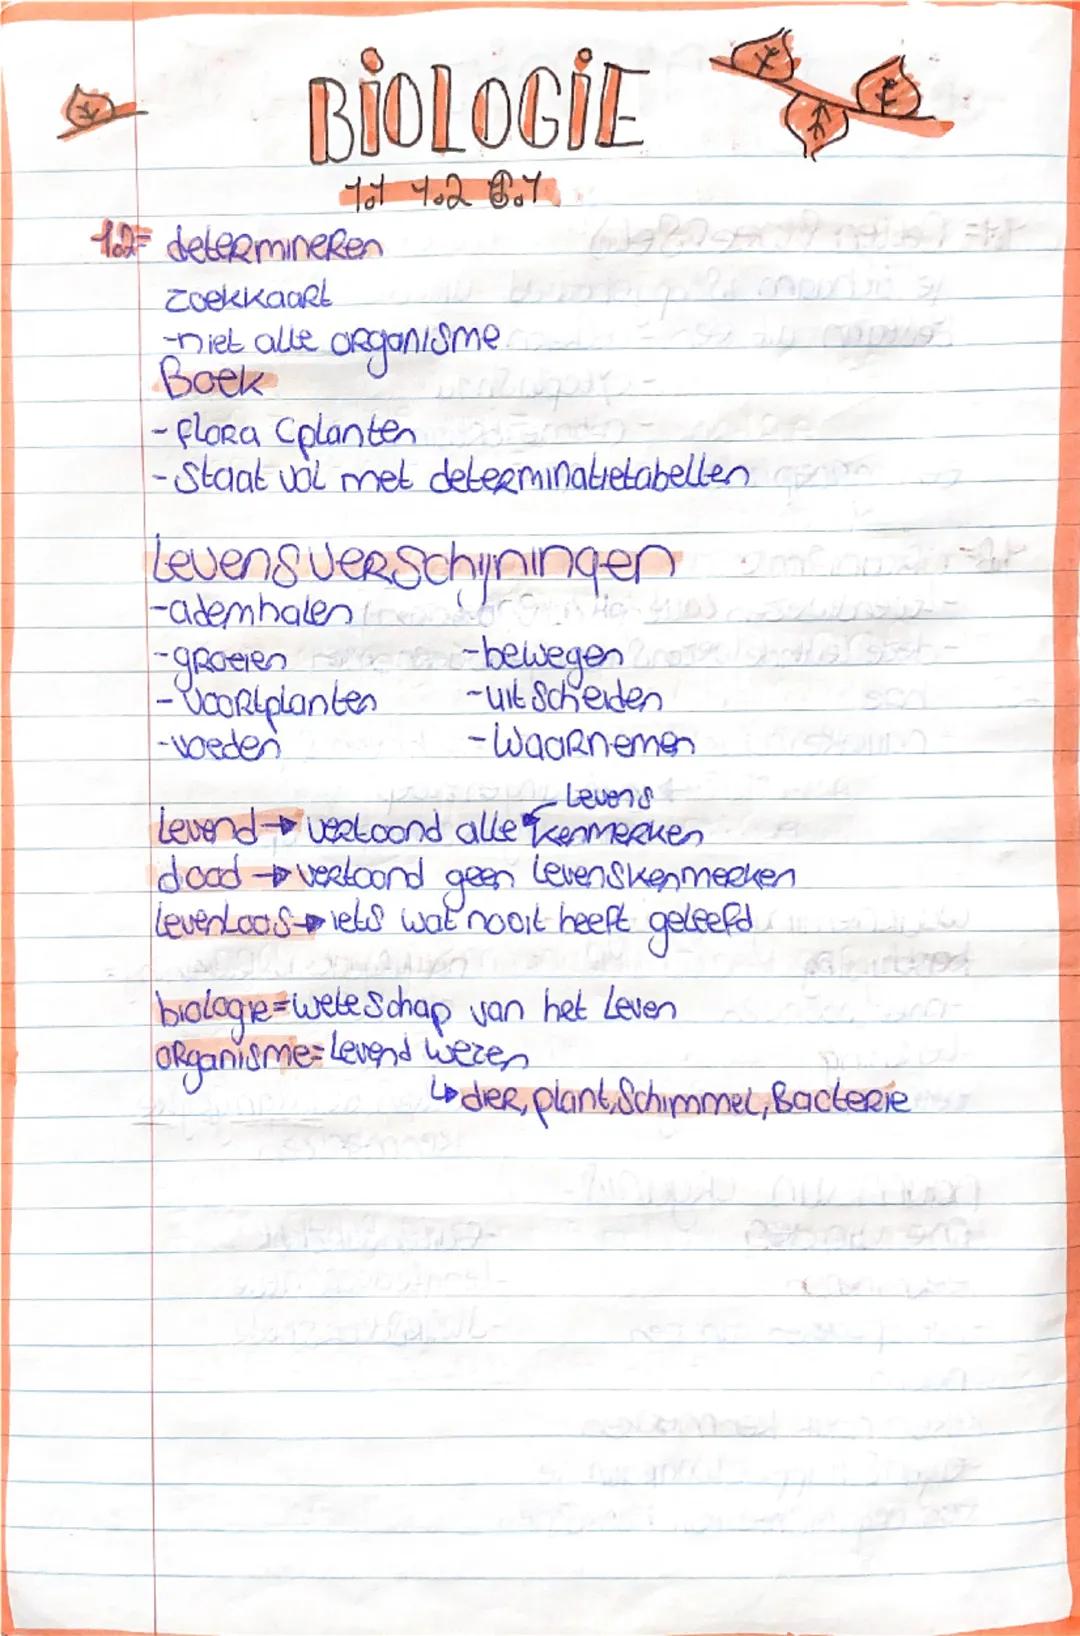 BiOLOGiE
1.1 1.2 8.1
1.2= determineren
zoekkaart
-niet alle organisme
Boek
- flora (planten
- Staat vol met determinatietabellen
Levensverschijningen
-ademhalen
-groeien -bewegen
- voortplanten -uitscheiden
-voeden -waarnemen
Levens
Levend → vertoond alle kenmerken
dood → vertoond geen levenskenmerken
Levenloos → iets wat nooit heeft geleefd
biologie = weteschap van het Leven
organisme = Levend wezen
↳ dier, plant, Schimmel, Bacterie